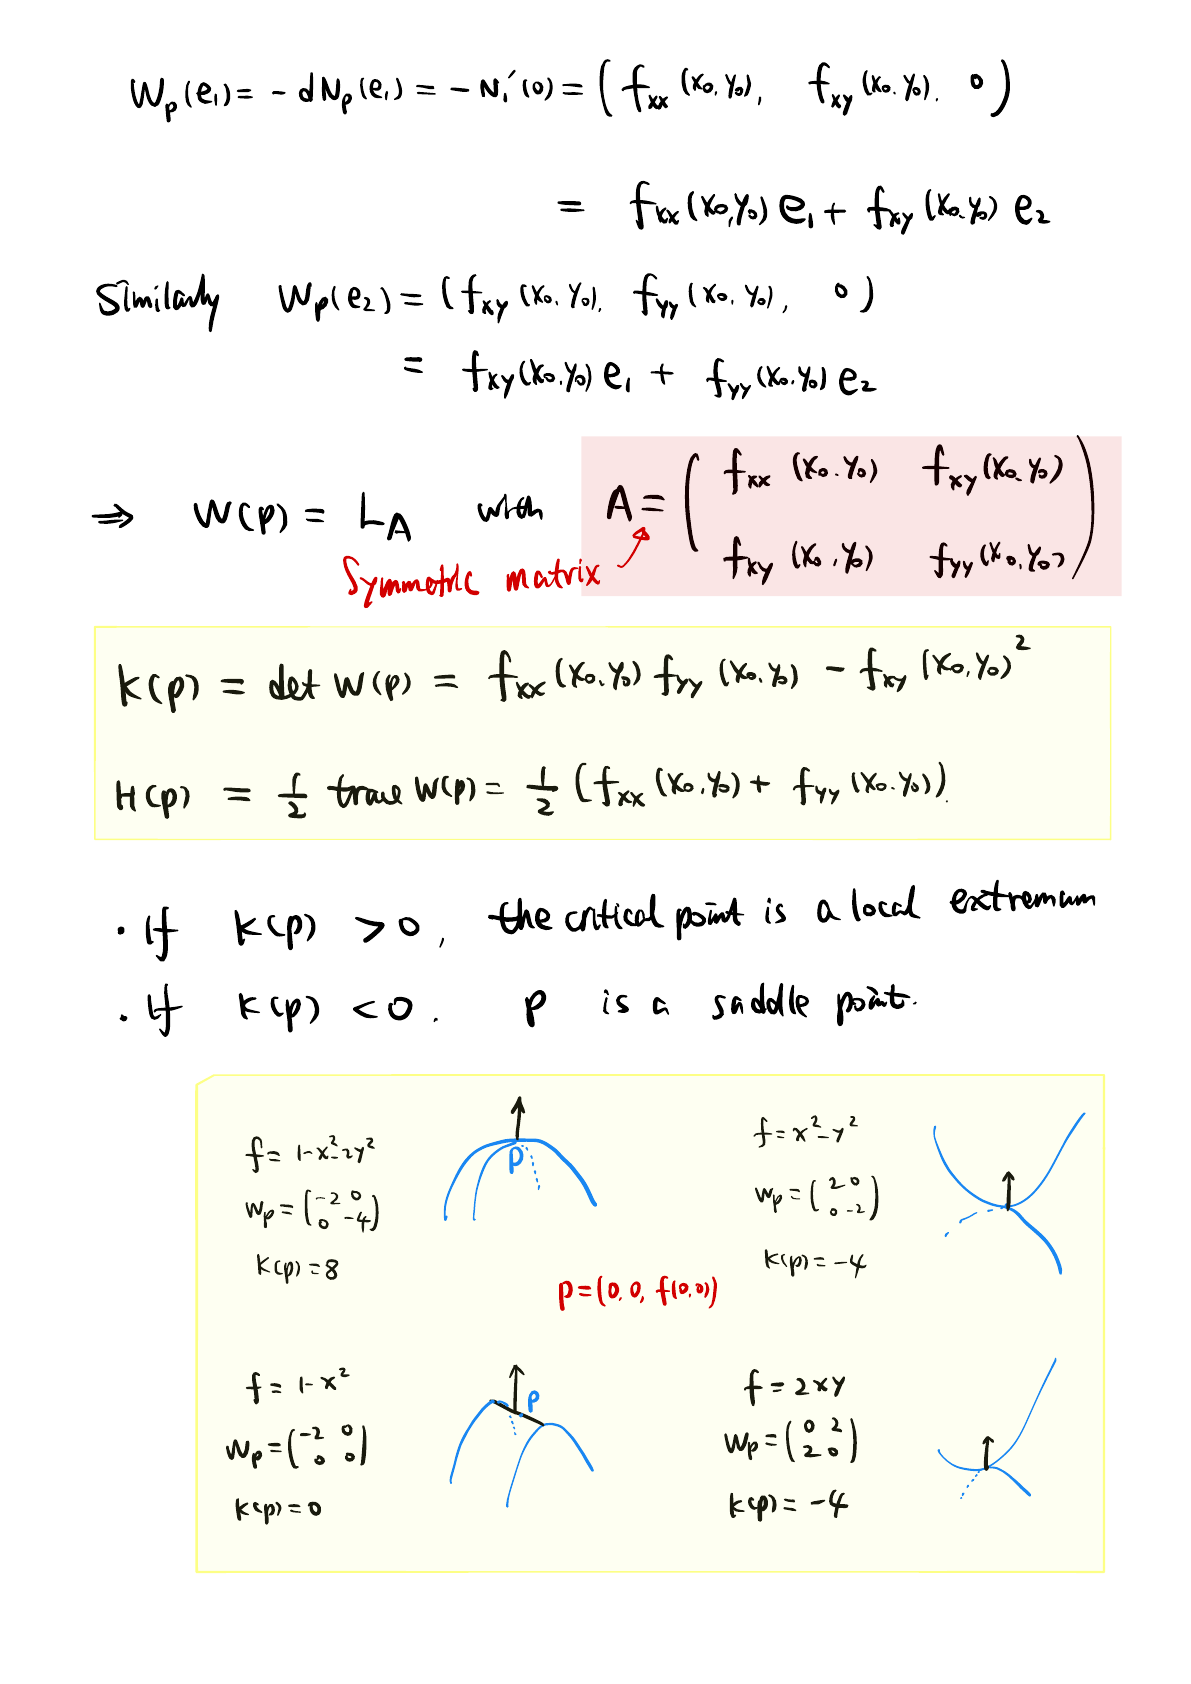 W_p(e₁) = - dN_p(e₁) = - N₁′(0) = ( f_xx (x₀,y₀), f_xy (x₀,y₀), 0 )
= f_xx (x₀,y₀) e₁ + f_xy (x₀,y₀) e₂
Similarly W_p(e₂) = ( f_xy (x₀,y₀), f_yy (x₀,y₀), 0 )
= f_xy (x₀,y₀) e₁ + f_yy (x₀,y₀) e₂
⇒ W(p) = L_A with A = ( f_xx (x₀,y₀) f_xy (x₀,y₀)
f_xy (x₀,y₀) f_yy (x₀,y₀) )
Symmetric matrix
K(p) = det W(p) = f_xx (x₀,y₀) f_yy (x₀,y₀) - f_xy (x₀,y₀)²
H(p) = 1/2 trace W(p) = 1/2 ( f_xx (x₀,y₀) + f_yy (x₀,y₀) ).
· If K(p) > 0, the critical point is a local extremum
· If K(p) < 0. p is a saddle point.
f = 1-x²-2y²
W_p = ( -2 0
0 -4 )
K(p) = 8
p
f = x²-y²
W_p = ( 2 0
0 -2 )
K(p) = -4
p = (0, 0, f(0,0))
f = 1-x²
W_p = ( -2 0
0 0 )
K(p) = 0
p
f = 2xy
W_p = ( 0 2
2 0 )
K(p) = -4